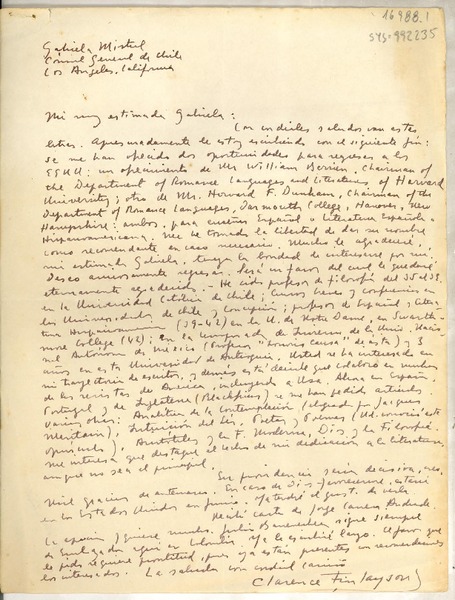 16988.1
sys=992235
Gabriela Mistral
Cónsul General de Chile
Los Angeles, California
Mi muy estimada Gabriela:
Con cordiales saludos van estas
letras. Apresuradamente le estoy escribiendo con el siguiente fin:
se me han ofrecido dos oportunidades para regresar a los
EEUU: un ofrecimiento de Mr William Berrien, Chairman of
the Department of Romance Languages and Literatures of Harvard
University; otro de Mr. Howard F. Dunham, Chairman of the
Department of Romance Languages, Darmouth College, Hanover, New
Hampshire: ambos, para enseñar Español o Literatura Española e
Hispanoamericana. Me he tomado la libertad de dar su nombre
como recomendante en caso necesario. Mucho le agradeceré,
mi estimada Gabriela, tenga la bondad de interesarse por mí.
Deseo ansiosamente regresar. Será un favor del cual le quedaré
eternamente agradecido. - He sido profesor de Filosofía del
en la Universidad Católica de Chile; Cursos libres y conferencias en
las Universidades de Chile y Concepción; profesor de Español y Litera-
tura Hispanoamericana (39-42) en la U. de Notre Dame, en Swarth-
more College (42); en la de de la Univ. Nacio-
nal Autónoma de México (Profesor "honoris causa" de esta) y 3
años en esta Universidad de Antioquia. Usted se ha interesado en
mi trayectoria de escritor, y demás está decirle que colaboro en muchas
de las revistas de América, incluyendo a Usa. Ahora en España,
Portugal y de Inglaterra (Blackfriars) se me han pedido artículos.
Varios obras: Analítica de la Contemplación (elogiado por Jacques
Maritain), Intuición del Ser, Poetas y Poemas (Ud. conoció este
opúsculo), Aristóteles y la F. Moderna, Dios y la Filosofía.
Me interesa que destaque el lado de mi dedicación a la literatura,
aunque no sea el principal.
Su providencia sería decisiva, creo.
Mil gracias de antemano. En caso de Dios favorecerme, estaré
en los Estados Unidos en junio. Y tendré el gusto de verla.
Recibí carta de Jorge Carrera Andrade.
La aprecia y quiere mucho. Julio Barrenechea sigue siempre
de Embajador aquí en Colombia. Ya la escribiré largo. El favor que
le pido requiere prontitud, pues ya están presentes en recomendaciones
los interesados. La saluda con cordial cariño
Clarence Finlayson